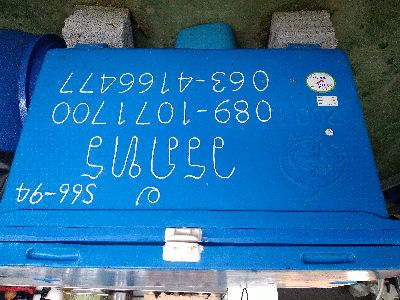 S66-94
วรภัทร
089-1071700
063-4166477